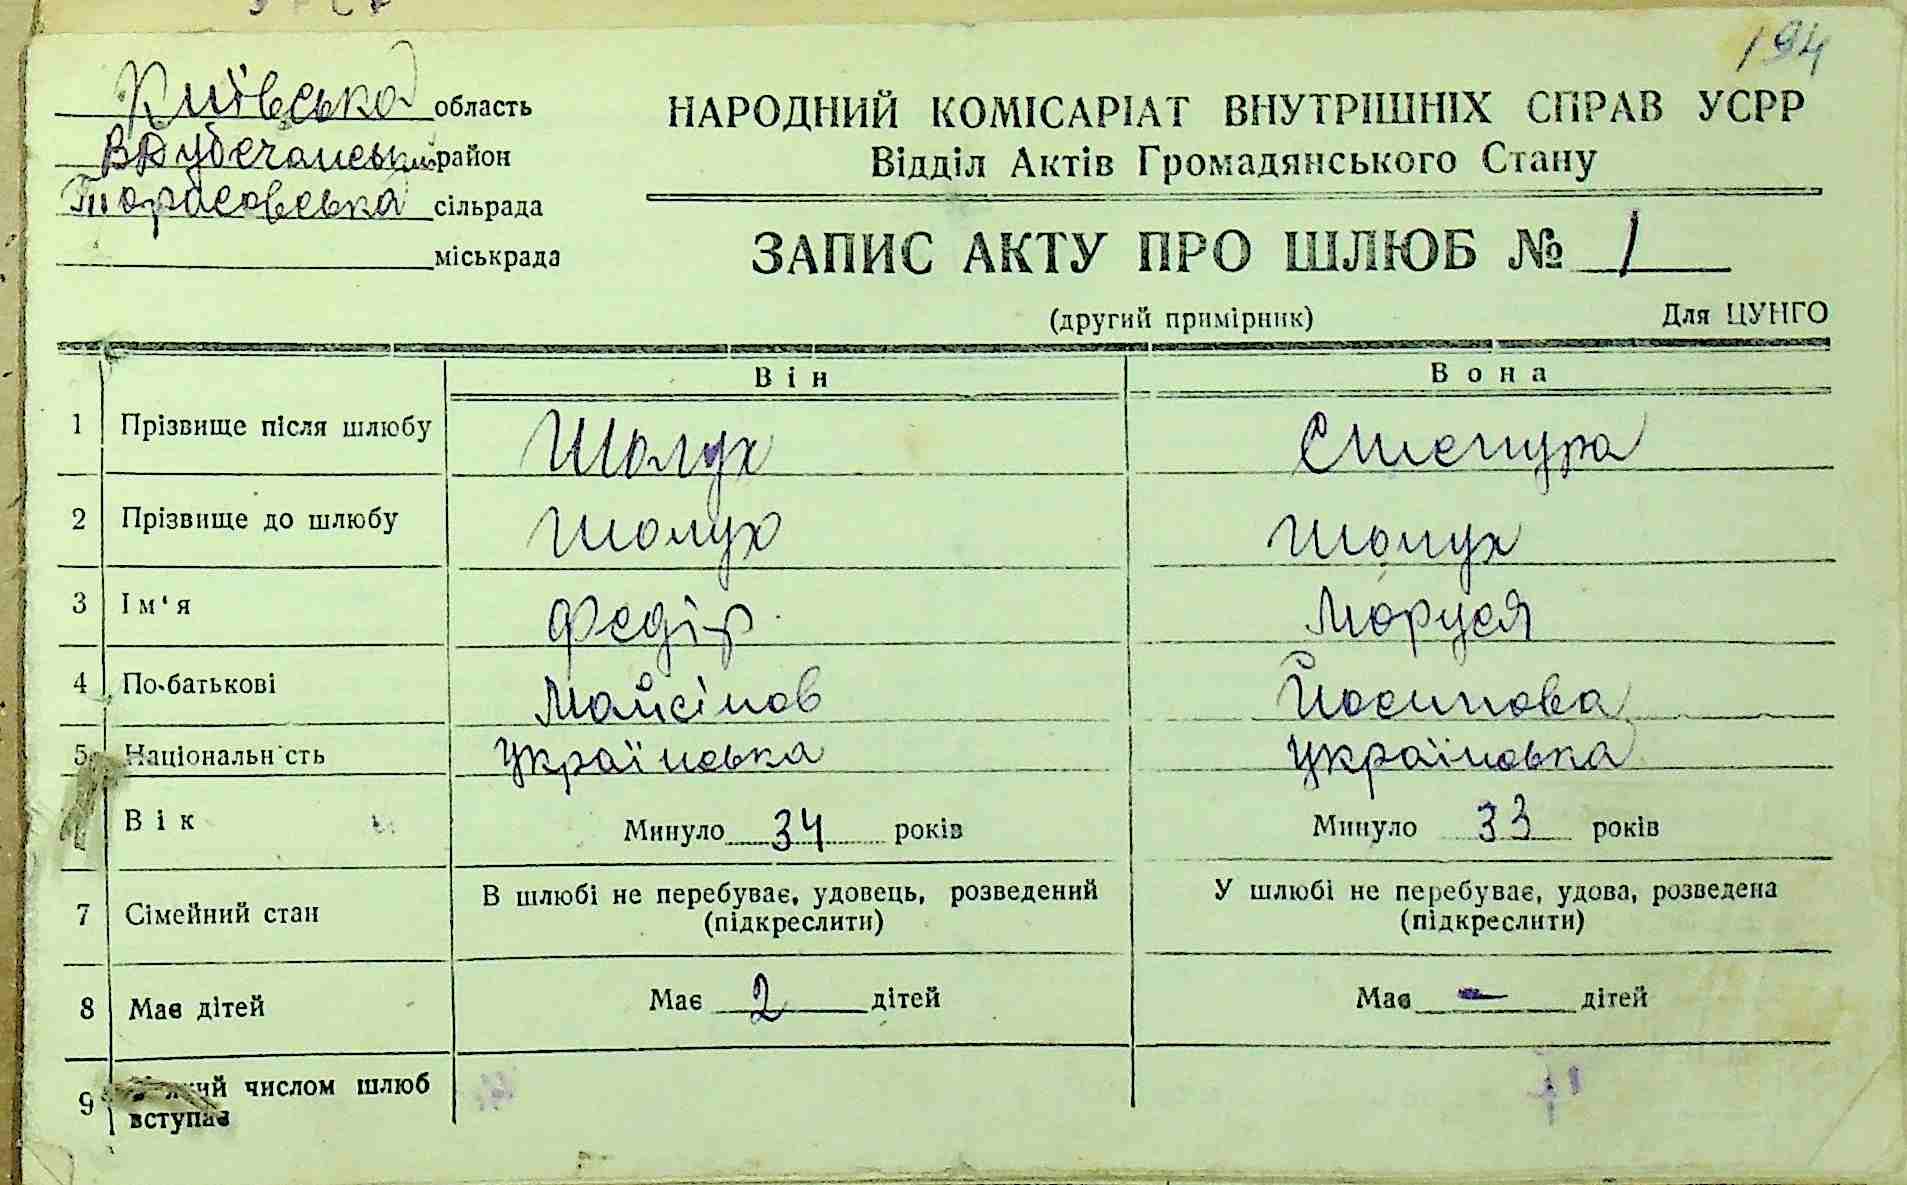 194
Київська область
В Дубечанський район
Тарасовська сільрада
міськрада
НАРОДНИЙ КОМІСАРІАТ ВНУТРІШНІХ СПРАВ УСРР
Відділ Актів Громадянського Стану
ЗАПИС АКТУ ПРО ШЛЮБ № 1
(другий примірник) Для ЦУНГО
Він Вона
1 Прізвище після шлюбу Шолух Степура
2 Прізвище до шлюбу Шолух Шолух
3 Ім'я Федір Маруся
4 По-батькові Йосипова
5 Національність Українська Українська
Вік Минуло 34 років Минуло 33 років
7 Сімейний стан В шлюбі не перебуває, удовець, розведений (підкреслити) У шлюбі не перебуває, удова, розведена (підкреслити)
8 Має дітей Має 2 дітей Має - дітей
9 числом шлюб
вступає